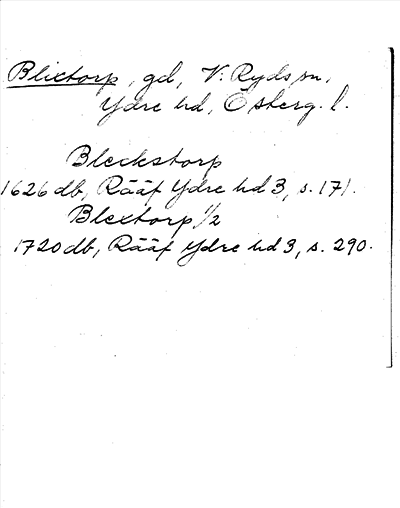 Blixtorp, gd, V. Ryds sn,
Ydre hd, Östergl.
Bleckstorp
1626 db, Rääf Ydre hd 3, s. 171.
Blextorp 1/2
1720 db, Rääf Ydre hd 3, s. 290.